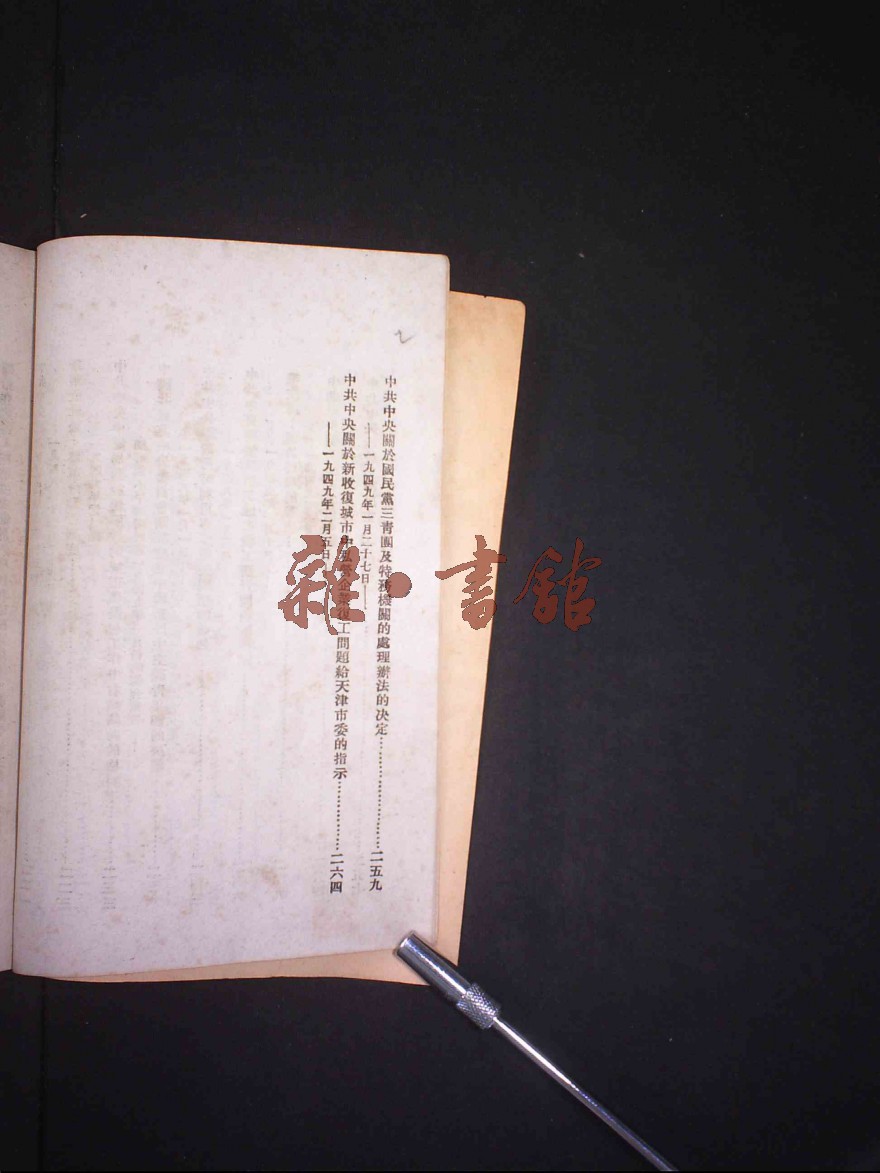 中共中央關於國民黨三青團及特務機關的處理辦法的決定……………………二五九
——一九四九年一月二十七日——
中共中央關於新收復城市中私營企業復工問題給天津市委的指示………………二六四
——一九四九年二月五日
雜·書館
2